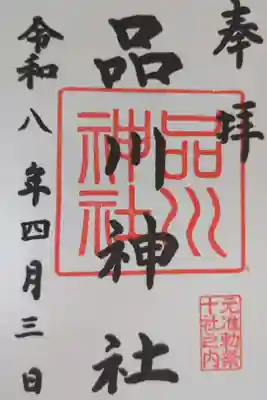 奉拝
品川神社
品川
神社
元准勅祭
十社之内
令和八年四月三日